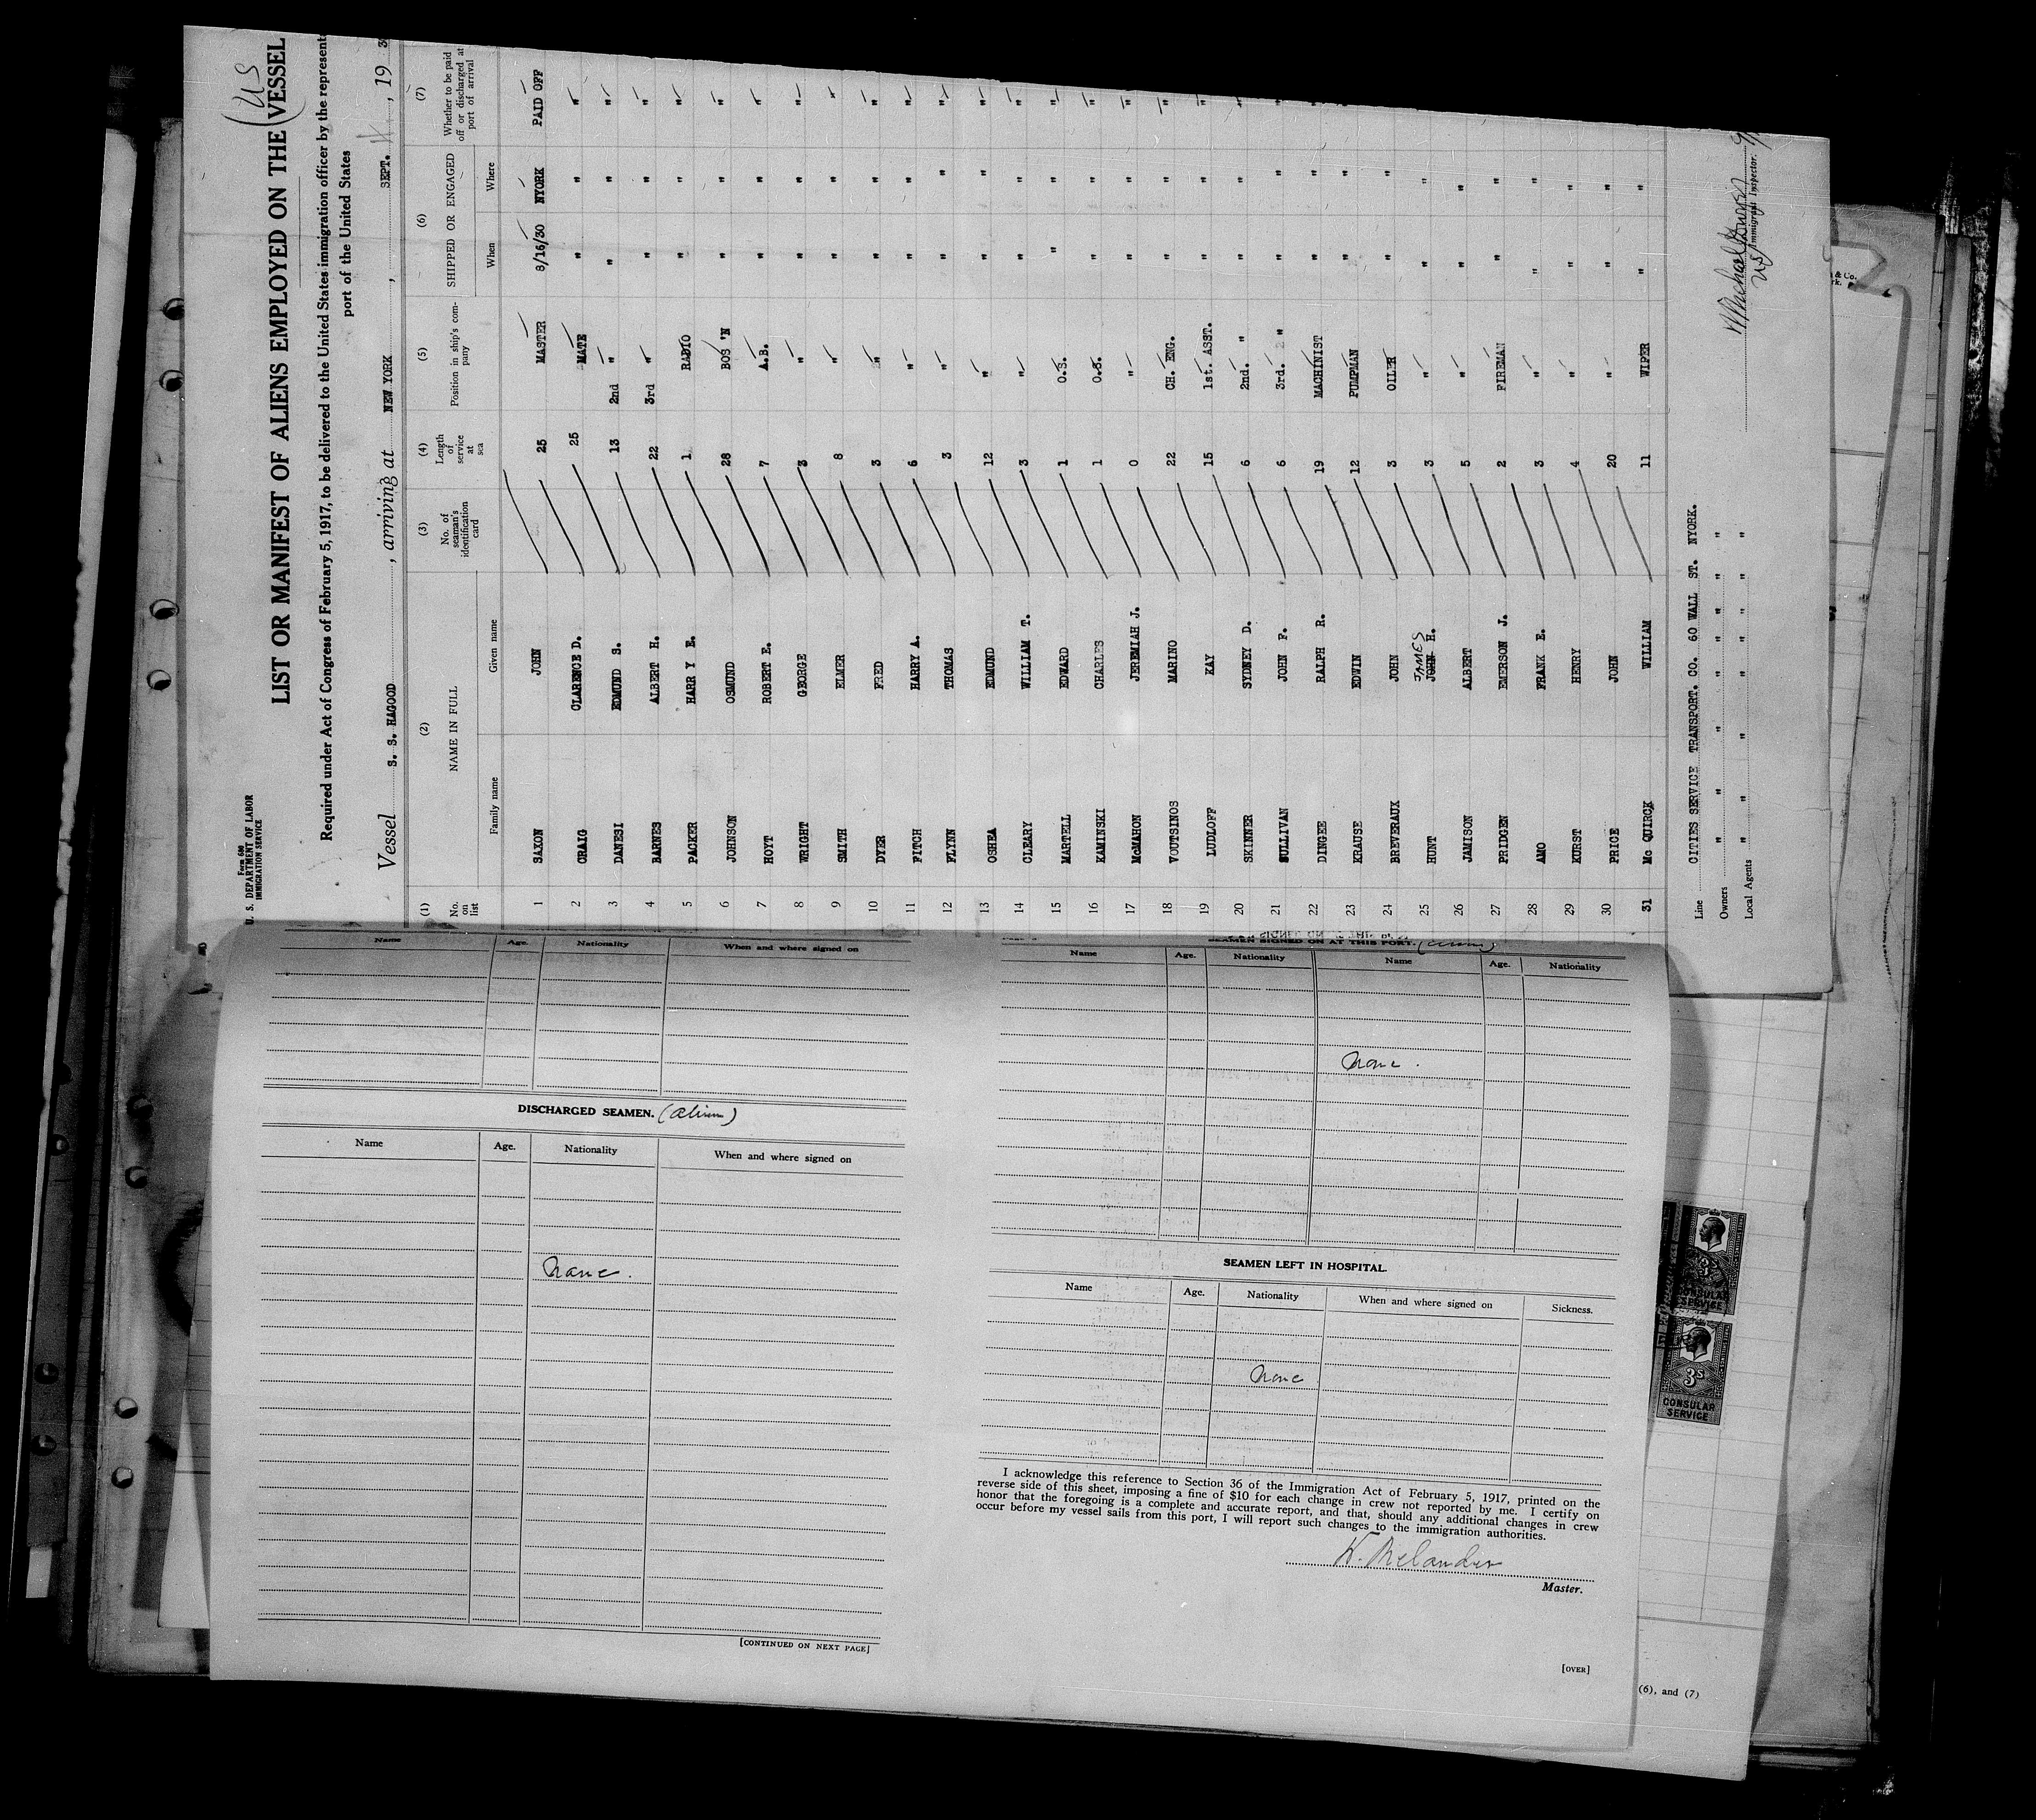 Form 680
U. S. DEPARTMENT OF LABOR
IMMIGRATION SERVICE
(US
LIST OR MANIFEST OF ALIENS EMPLOYED ON THE VESSEL
Required under Act of Congress of February 5, 1917, to be delivered to the United States immigration officer by the represent
port of the United States
Vessel S. S. HAGOOD, arriving at NEW YORK, SEPT. , 19 3
(1) (2) (3) (4) (5) (6) (7)
No. on list NAME IN FULL No. of seaman's identification card Length of service at sea Position in ship's company SHIPPED OR ENGAGED Whether to be paid off or discharged at port of arrival
Family name Given name When Where
1 SAXON JOHN 25 MASTER 8/16/30 NYORK PAID OFF
2 CRAIG CLARENCE D. 25 MATE " " "
3 DANESI EDMUND S. 13 2nd " " " "
4 BARNES ALBERT H. 22 3rd " " " "
5 PACKER HARR Y E. 1 RADIO " " "
6 JOHNSON OSMUND 28 BOS 'N " " "
7 HOYT ROBERT E. 7 A.B. " " "
8 WRIGHT GEORGE 3 " " " "
9 SMITH ELMER 8 " " " "
10 DYER FRED 3 " " " "
11 FITCH HARRY A. 6 " " " "
12 FLYNN THOMAS 3 " " " "
13 OSHEA EDMUND 12 " " " "
14 CLEARY WILLIAM T. 3 " " " "
15 MARTELL EDWARD 1 O.S. " " "
16 KAMINSKI CHARLES 1 O.S. " " "
17 McMAHON JEREMIAH J. 0 " " " "
18 VOUTSINOS MARINO 22 CH. ENG. " " "
19 LUDLOFF KAY 15 1st. ASST. " " "
20 SKINNER SYDNEY D. 6 2nd. " " " "
21 SULLIVAN JOHN F. 6 3rd. " " " "
22 DINGEE RALPH R. 19 MACHINIST " " "
23 KRAUSE EDWIN 12 PUMPMAN " "
24 BREVERAUX JOHN 3 OILER " "
25 HUNT JAMES JOHN H. 3 " " "
26 JAMISON ALBERT 5 " " "
27 PRIDGEN EMERSON J. 2 FIREMAN " "
28 AMO FRANK E. 3 " " "
29 KURST HENRY 4 " " "
30 PRICE JOHN 20 " " "
31 Mc QUIRCK WILLIAM 11 WIPER " "
Line CITIES SERVICE TRANSPORT. CO. 60 WALL ST. NYORK.
Owners " " " " " " "
Local Agents " " " " " " "
Immigrant Inspector.
US
Name Age. Nationality When and where signed on
DISCHARGED SEAMEN. (Aliens)
Name Age. Nationality When and where signed on
None.
[CONTINUED ON NEXT PAGE]
SEAMEN SIGNED ON AT THIS PORT. (Aliens)
Name Age. Nationality Name Age. Nationality
None.
SEAMEN LEFT IN HOSPITAL.
Name Age. Nationality When and where signed on Sickness.
None
I acknowledge this reference to Section 36 of the Immigration Act of February 5, 1917, printed on the
reverse side of this sheet, imposing a fine of $10 for each change in crew not reported by me. I certify on
honor that the foregoing is a complete and accurate report, and that, should any additional changes in crew
occur before my vessel sails from this port, I will report such changes to the immigration authorities.
K. Melander
Master.
[OVER]
3S
CONSULAR
SERVICE
3S
CONSULAR
SERVICE
(6), and (7)